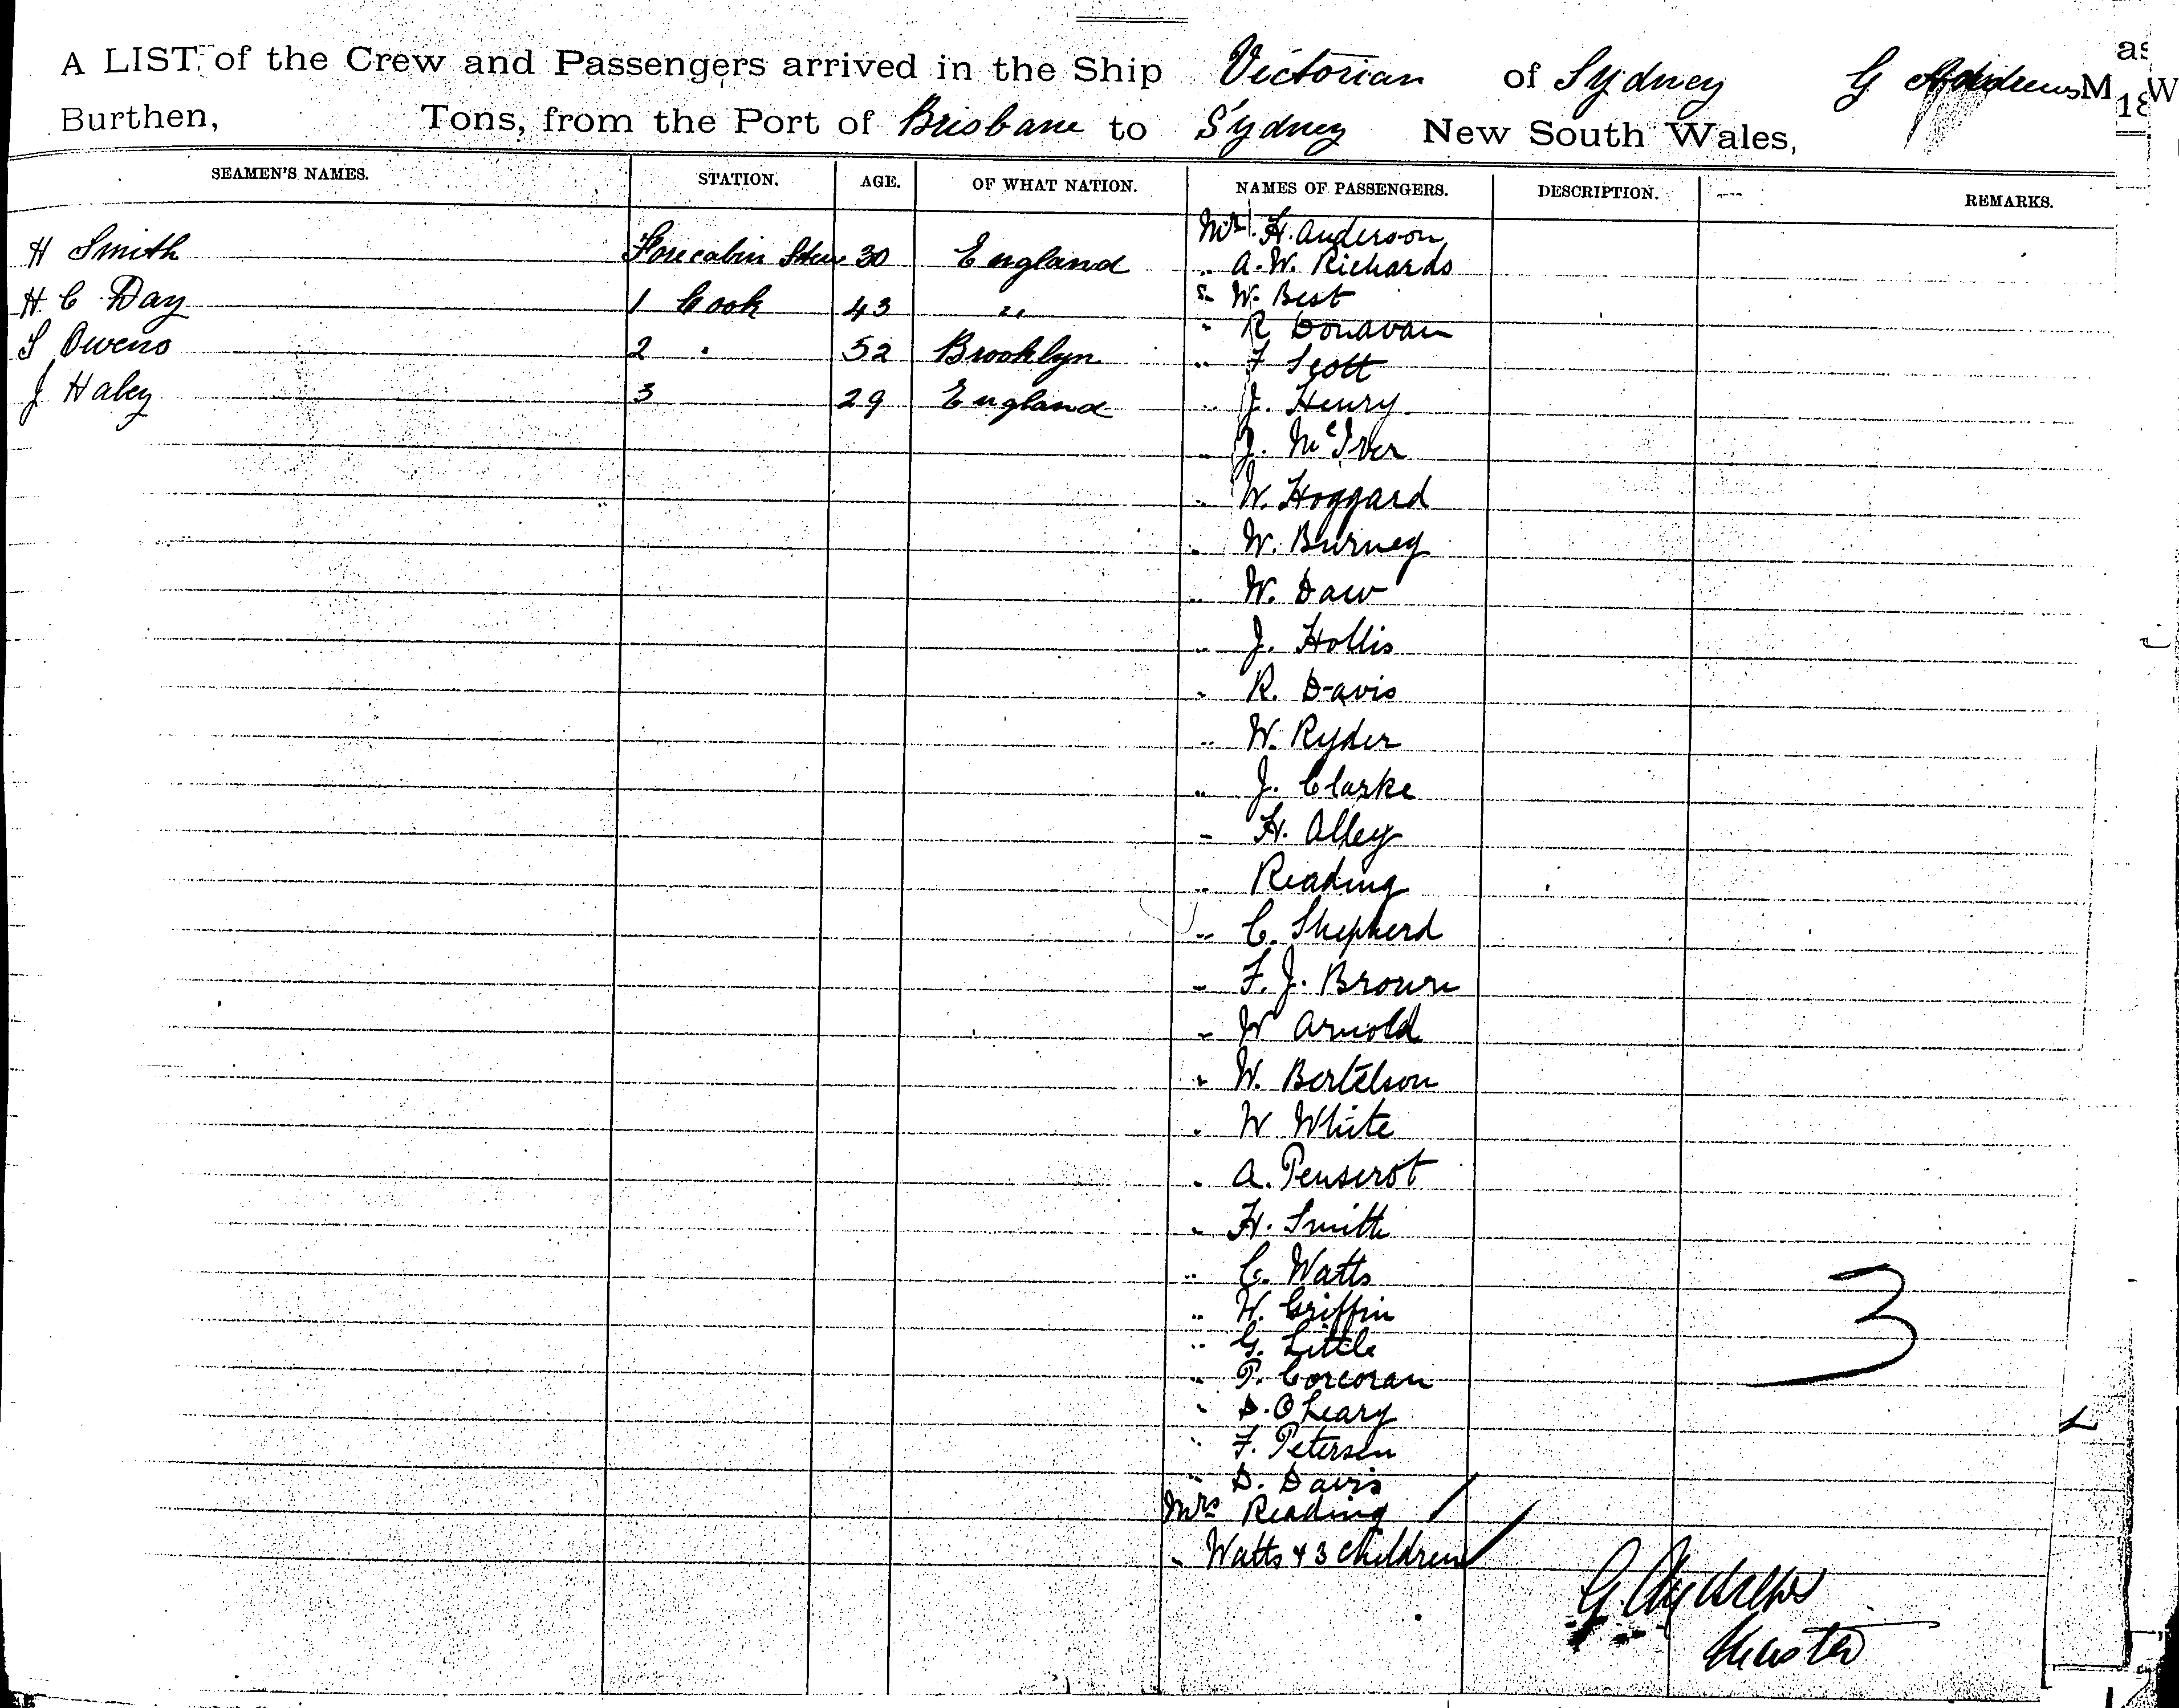 A LIST of the Crew and Passengers arrived in the Ship Victorian of Sydney G Andrews M as W
Burthen, Tons, from the Port of Brisbane to Sydney New South Wales, 18
SEAMEN'S NAMES. STATION. AGE. OF WHAT NATION. NAMES OF PASSENGERS. DESCRIPTION. REMARKS.
Mr. H. Anderson
H Smith Forecabin Stew 30 England .. A. W. Richards
H C Day 1 Cook 43 " " W. Best
" R Donavan
S Owens 2 " 52 Brooklyn " F Scott
J Haley 3 29 England " J. Henry
" J. McIver
" W. Hoggard
" W. Burney
" W. Daw
" J. Hollis
" R. Davis
" W. Ryder
" J. Clarke
" H. Alley
" Reading
" C. Shepherd
" F. J. Brown
" W Arnold
" W. Bertelson
" W White
" A. Penserot
" H. Smith
" C. Watts
" W. Griffin
" G. Little
" P. Corcoran
" D. O Leary
" F. Petersen
" D. Davis
Mrs Reading
" Watts & 3 children
3
G. Andrews
Master